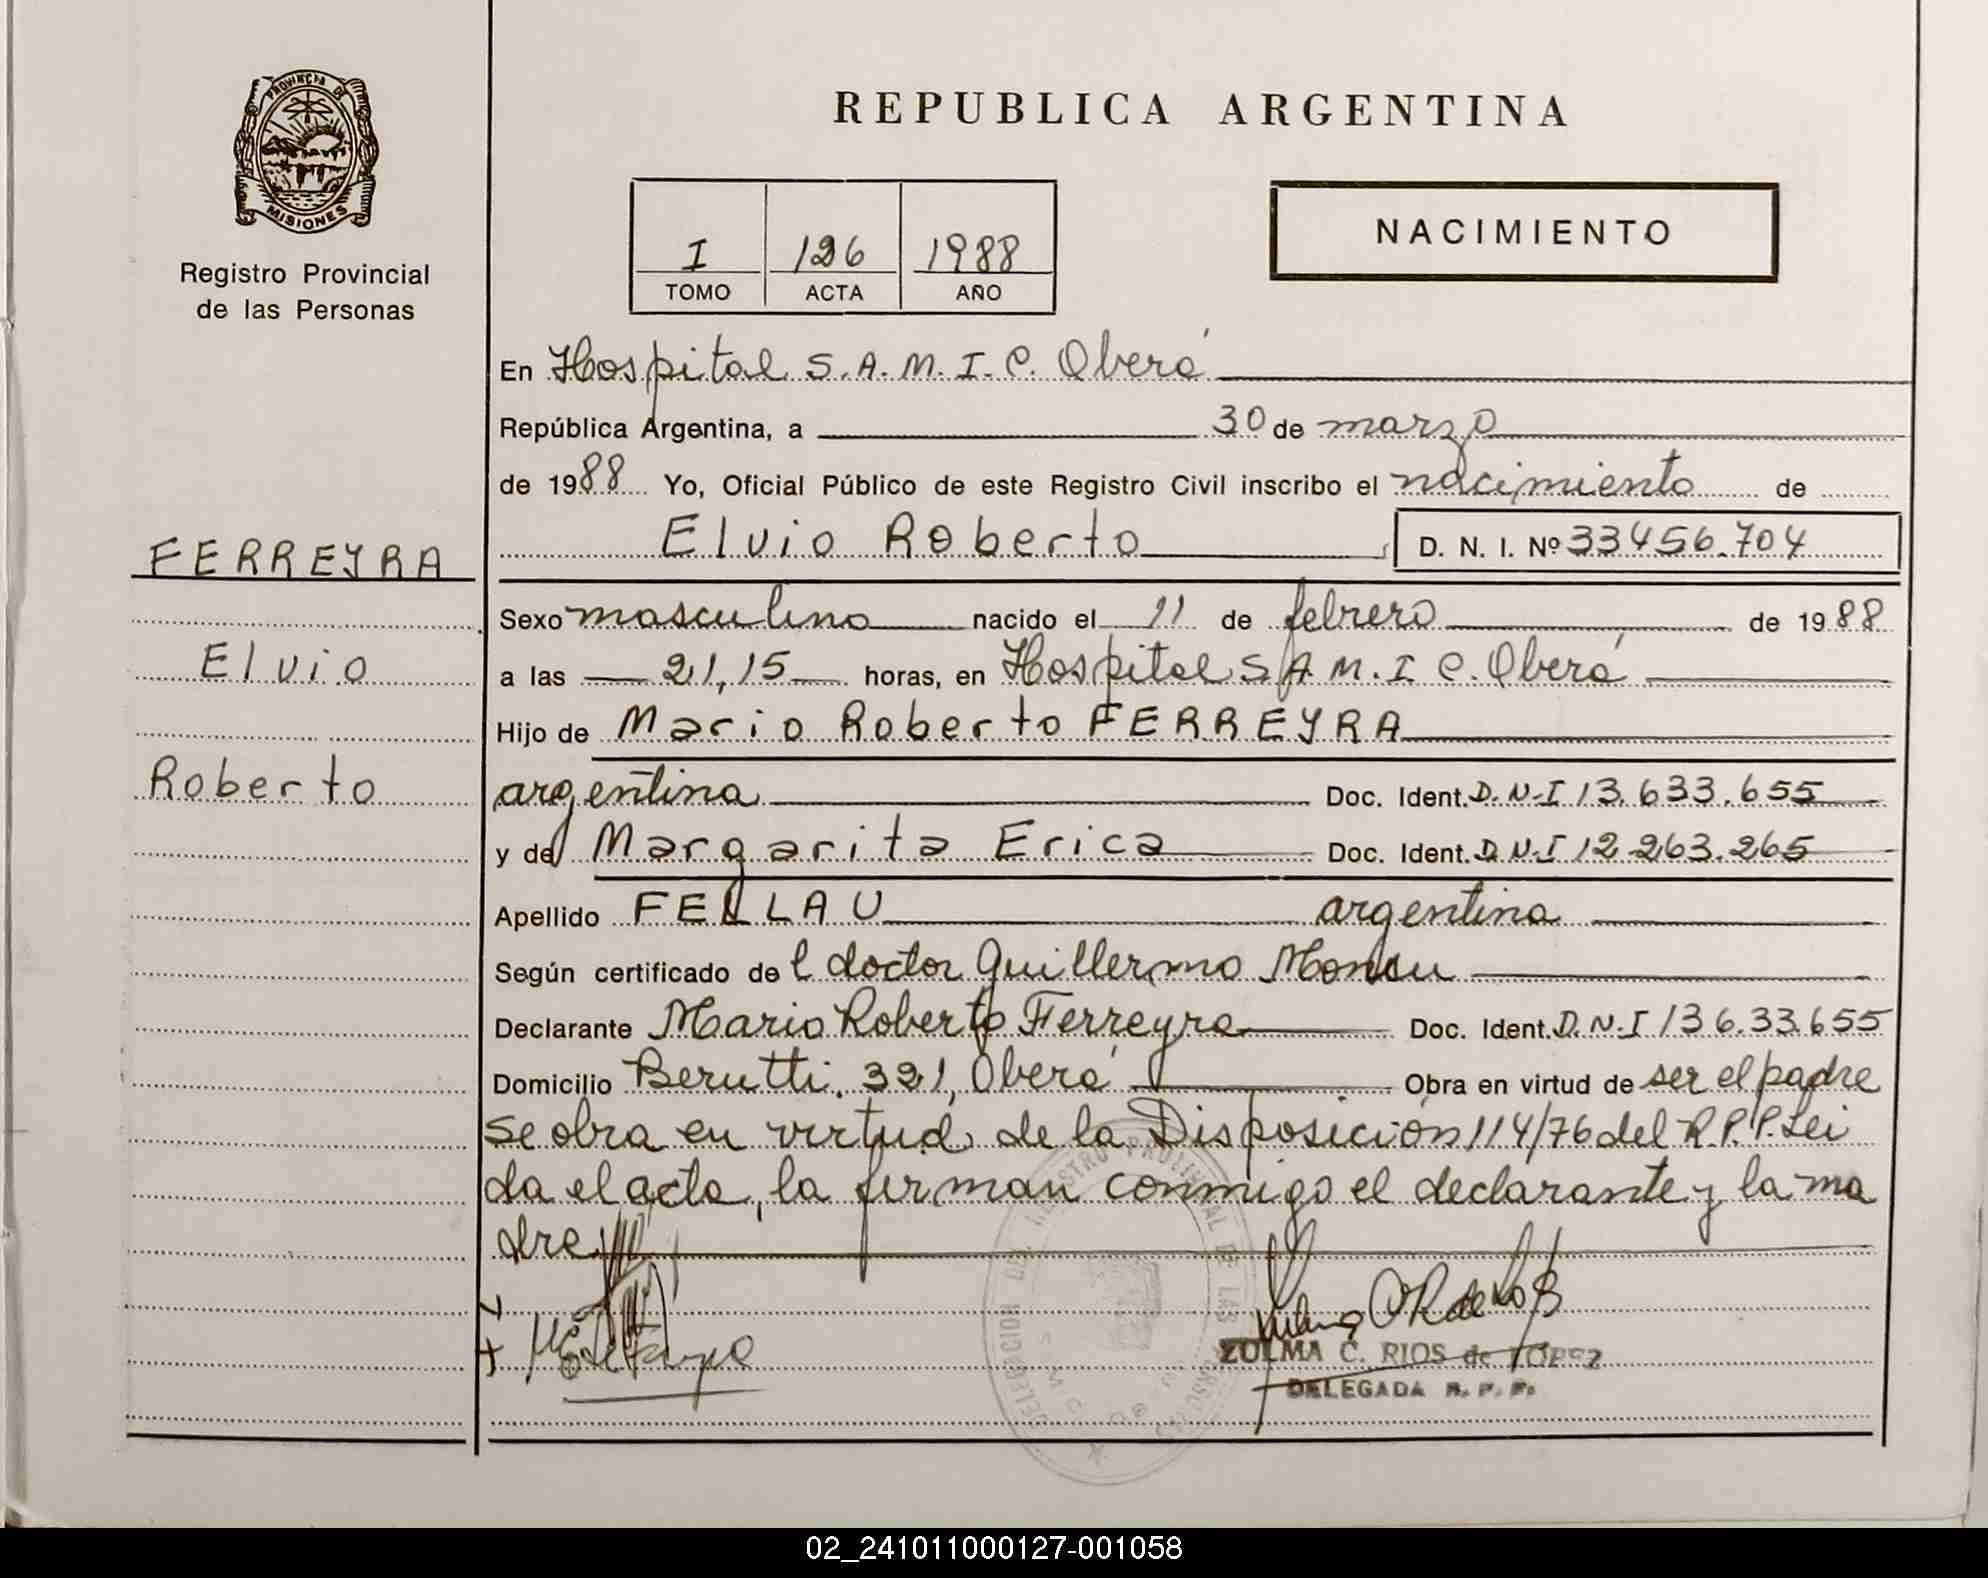 PROVINCIA DE
MISIONES
Registro Provincial
de las Personas
FERREYRA
Elvio
Roberto
REPUBLICA ARGENTINA
I 126 1988
TOMO ACTA AÑO
NACIMIENTO
En Hospital S.A.M.I.C. Oberá
República Argentina, a 30 de marzo
de 1988 Yo, Oficial Público de este Registro Civil inscribo el nacimiento de
Elvio Roberto D. N. I. Nº 33456.704
Sexo masculino nacido el 11 de febrero de 1988
a las 21,15 horas, en Hospital S A M. I C. Oberá
Hijo de Mario Roberto FERREYRA
argentina Doc. Ident. D.N.I 13.633.655
y de Margarita Erica Doc. Ident. D.N.I 12 263.265
Apellido FELLAU argentina
Según certificado de l doctor Guillermo
Declarante Mario Roberto Ferreyra Doc. Ident. D.N.I 136.33.655
Domicilio Berutti, 321, Oberá Obra en virtud de ser el padre
se obra en virtud de la Disposición 114/76 del R.P.P. Lei
da el acta, la firman conmigo el declarante y la ma
dre
ZULMA C. RIOS de LOPEZ
DELEGADA R. P. P.
DELEGACION DEL REGISTRO PROVINCIAL DE LAS PERSONAS
02_241011000127-001058